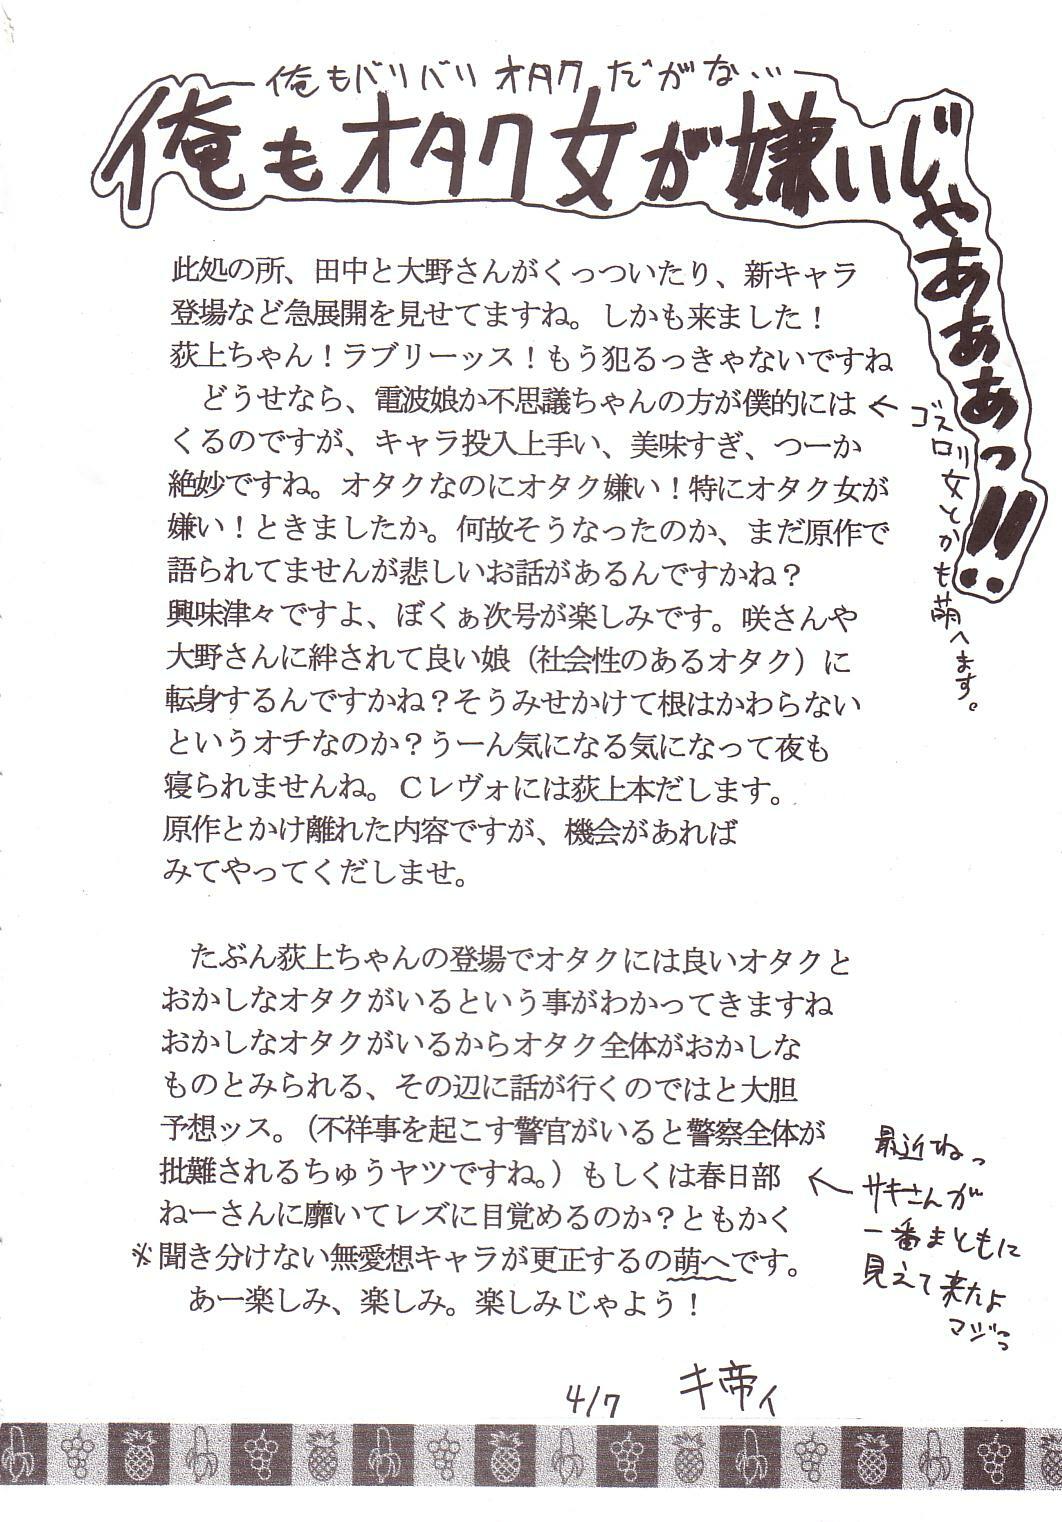 俺もバリバリオタクだがな…
俺もオタク女が嫌いじゃあああっ!!
此処の所、田中と大野さんがくっついたり、新キャラ
登場など急展開を見せてますね。しかも来ました！
荻上ちゃん！ラブリーッス！もう犯るっきゃないですね
どうせなら、電波娘か不思議ちゃんの方が僕的には
くるのですが、キャラ投入上手い、美味すぎ、つーか
絶妙ですね。オタクなのにオタク嫌い！特にオタク女が
嫌い！ときましたか。何故そうなったのか、まだ原作で
語られてませんが悲しいお話があるんですかね？
興味津々ですよ、ぼくぁ次号が楽しみです。咲さんや
大野さんに絆されて良い娘（社会性のあるオタク）に
転身するんですかね？そうみせかけて根はかわらない
というオチなのか？うーん気になる気になって夜も
寝られませんね。Ｃレヴォには荻上本だします。
原作とかけ離れた内容ですが、機会があれば
みてやってくだしませ。
←ゴスロリ女とかも萌へます。
たぶん荻上ちゃんの登場でオタクには良いオタクと
おかしなオタクがいるという事がわかってきますね
おかしなオタクがいるからオタク全体がおかしな
ものとみられる、その辺に話が行くのではと大胆
予想ッス。（不祥事を起こす警官がいると警察全体が
批難されるちゅうヤツですね。）もしくは春日部
ねーさんに靡いてレズに目覚めるのか？ともかく
※聞き分けない無愛想キャラが更正するの萌へです。
あー楽しみ、楽しみ。楽しみじゃよう！
最近ねっ
←サキさんが
一番まともに
見えて来たよ
マジっ
4/7 キ帝ィ